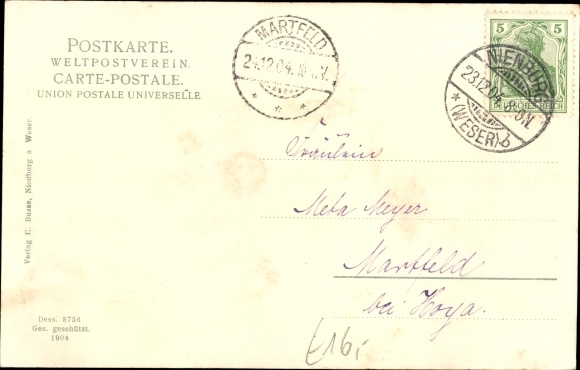 POSTKARTE.
WELTPOSTVEREIN.
CARTE-POSTALE.
UNION POSTALE UNIVERSELLE.
MARTFELD
24.12.04.
5 5
DEUTSCHES REICH
NIENBURG
23.12.04. 8-9N.
* (WESER) b
Fräulein
Meta Meyer
Martfeld
bei Hoya.
Verlag E. Busse, Nienburg a Weser.
Dess. 8756
Ges. geschützt.
1904
£16,-